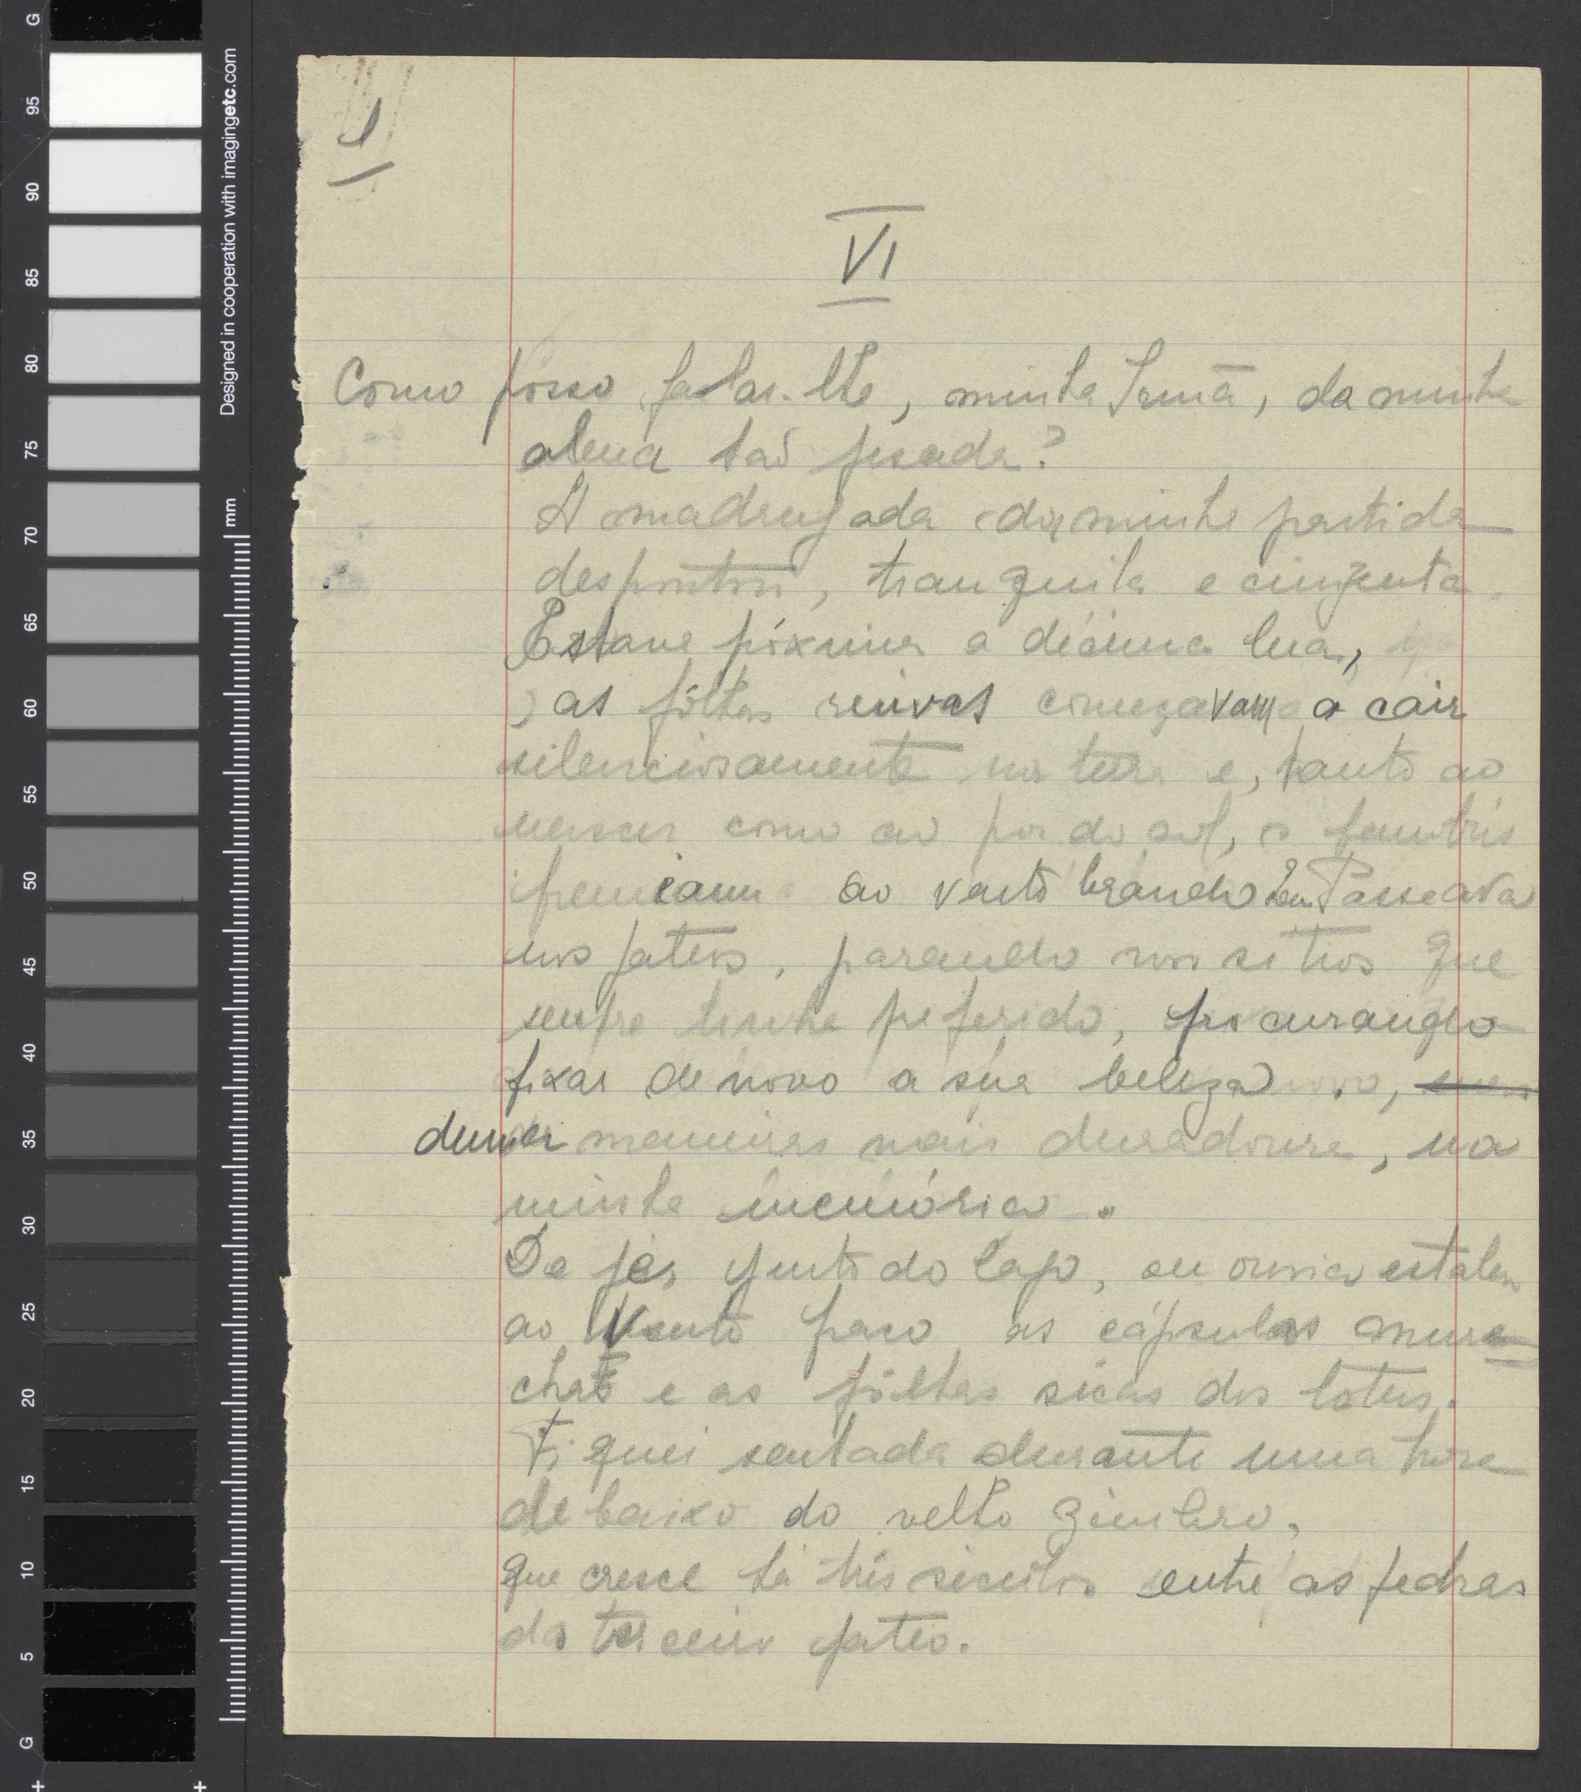 G
95
90
85
80
75
70
65
60
55
50
45
40
35
30
25
20
15
10
5
G
Designed in cooperation with imagingetc.com
mm
1
VI
Como posso falar-lhe, minha Irmã, da minha
alma tão pesada?
A madrugada da minha partida
despontou, tranquila e cinzenta.
Estava próxima a décima lua,
as fôlhas ruivas começavam a cair
silenciosamente na terra e, tanto ao
nascer como ao por do sol, os bambús
fremiam ao vento brando. Eu Passeava
nos pateos, parando nos sitios que
sempre tinha preferido, procurando
fixar de novo a sua beleza,
duma maneira mais duradoura, na
minha memória.
De pé, junto do lago, eu ouvia estalar
ao vento fraco as cápsulas mur-
chas e as fôlhas sêcas dos lotus.
Fiquei sentada durante uma hora
debaixo do velho zimbro,
que cresce há três seculos entre as pedras
do terceiro pateo.